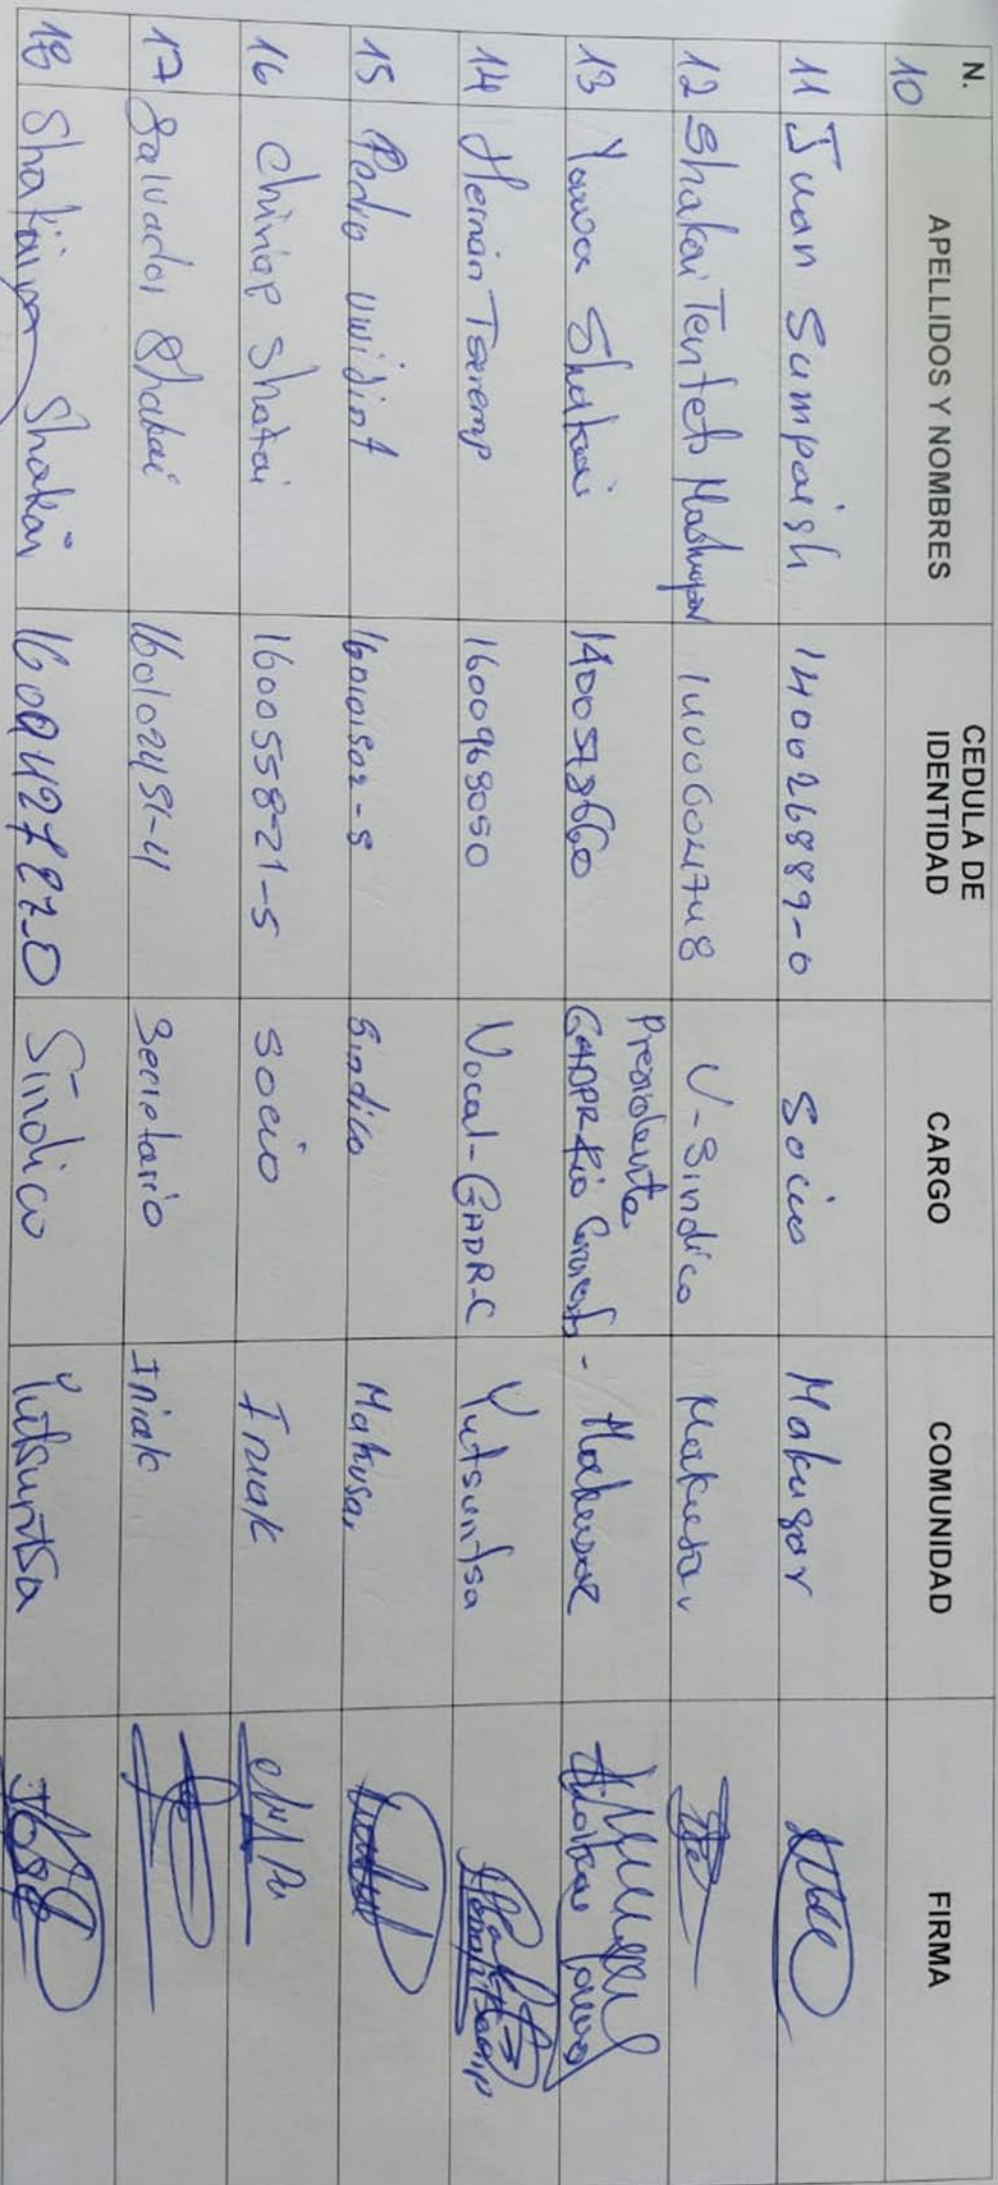 N. APELLIDOS Y NOMBRES CEDULA DE IDENTIDAD CARGO COMUNIDAD FIRMA
10
11 Juan Sumpaish 140026889-0 Socio Makusar
12 Shakai Tentets Mashugan 1400604748 V-Sindico Makusar
13 Yawa Shakai 1400578660 Presidente GADPR-Río Corrientes - Makusar
14 Hernán Tseremp 1600968050 Vocal-GADPR-C Yutsuntsa
15 Pedro Uwidint Sindico Makusar
16 Chiriap Shakai 160055821-5 Socio Iniak
17 Salvador Shakai Secretario Iniak
18 Shakaim Shakai Síndico Yutsuntsa